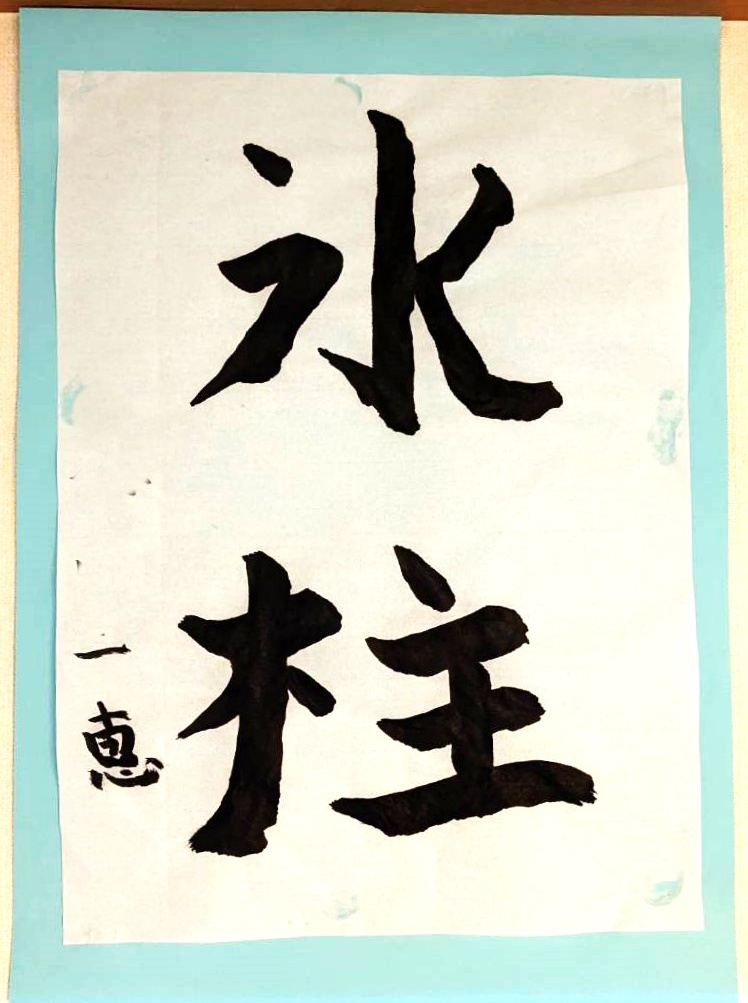 氷柱
一恵